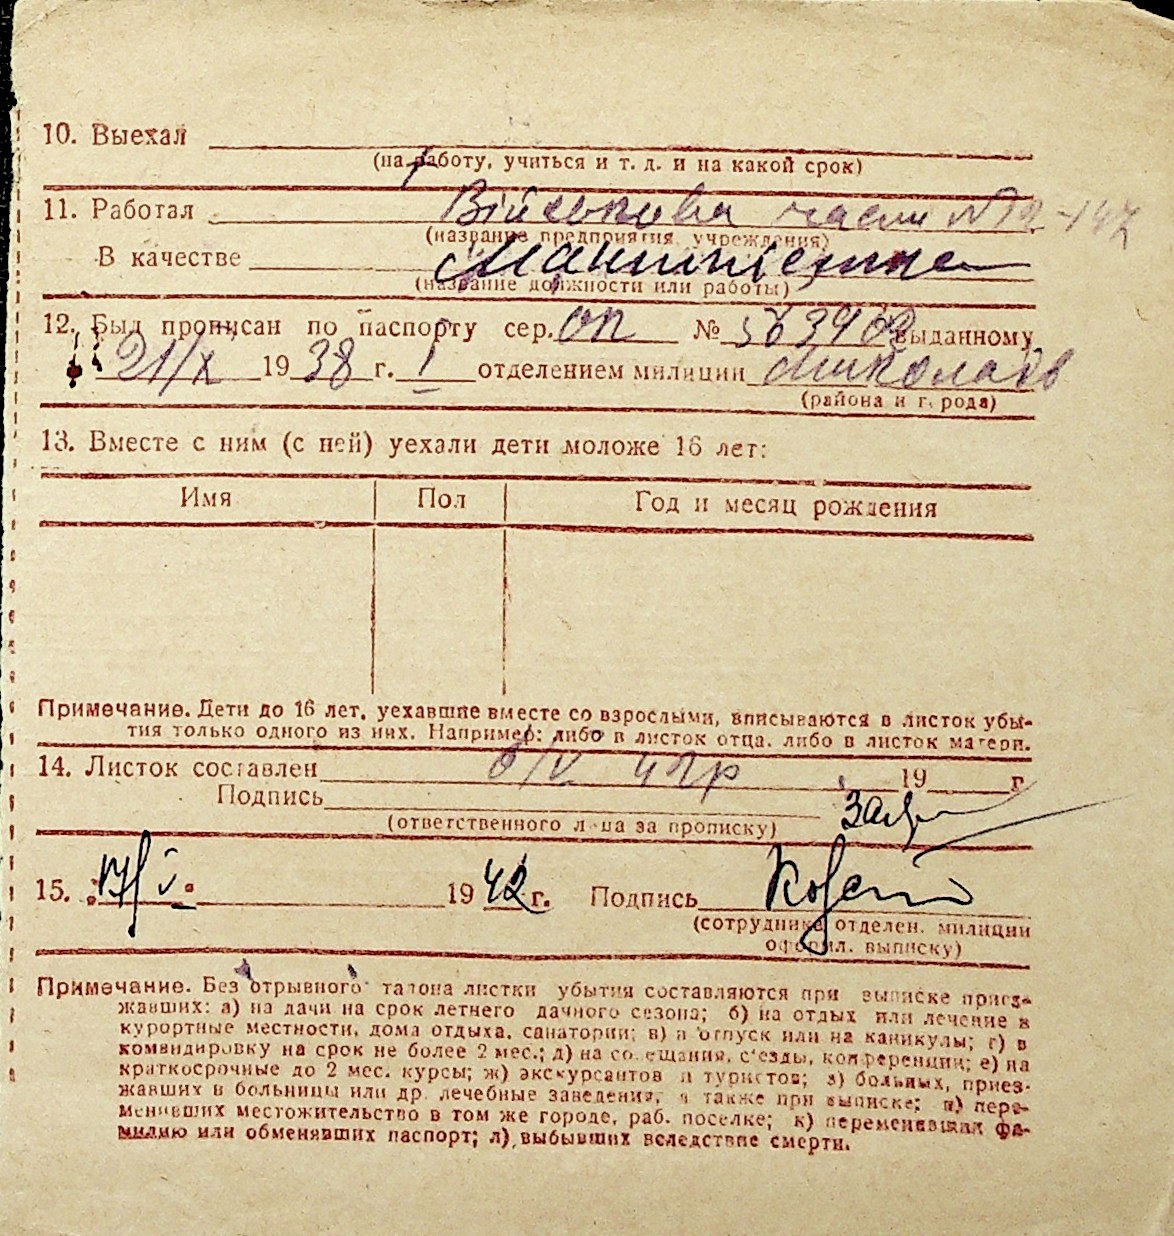 10. Выехал
(на работу, учиться и т. д. и на какой срок)
11. Работал Військова части №
(название предприятия, учреждения)
В качестве
(название должности или работы)
12. Был прописан по паспорту сер. ОП № 563962 выданному
21/X 1938 г. I отделением милиции Миколаїв
(района и города)
13. Вместе с ним (с ней) уехали дети моложе 16 лет:
Имя Пол Год и месяц рождения
Примечание. Дети до 16 лет, уехавшие вместе со взрослыми, вписываются в листок убы-
тия только одного из них. Например: либо в листок отца, либо в листок матери.
14. Листок составлен 6/V 42р 19 г
Подпись
(ответственного лица за прописку)
15. 17/V 1942 г. Подпись
(сотрудника отделен. милиции
оформл. выписку)
Примечание. Без отрывного талона листки убытия составляются при выписке приез-
жавших: а) на дачи на срок летнего дачного сезона; б) на отдых или лечение в
курортные местности, дома отдыха, санатории; в) в отпуск или на каникулы; г) в
командировку на срок не более 2 мес.; д) на совещания, с'езды, конференции; е) на
краткосрочные до 2 мес. курсы; ж) экскурсантов и туристов; з) больных, приез-
жавших в больницы или др. лечебные заведения, а также при выписке; и) пере-
менивших местожительство в том же городе, раб. поселке; к) переменивших фа-
милию или обменявших паспорт; л) выбывших вследствие смерти.